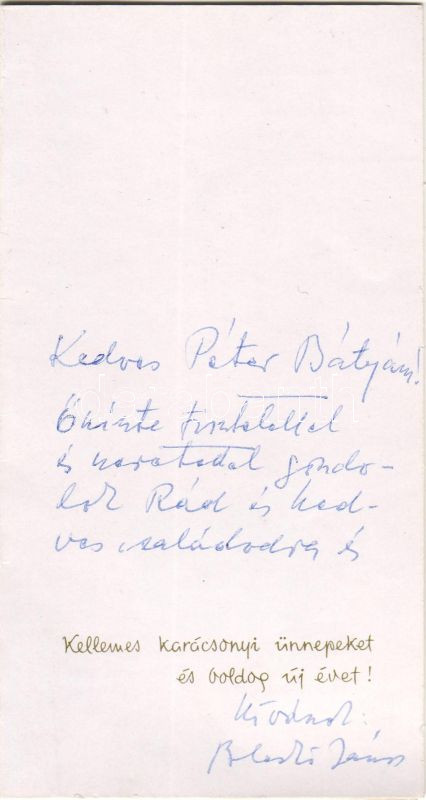 Kedves Péter Bátyám!
Őszinte tisztelettel
és szeretettel gondo-
lok Rád és ked-
ves családodra és
Kellemes karácsonyi ünnepeket
és boldog új évet!
Kívánok:
János